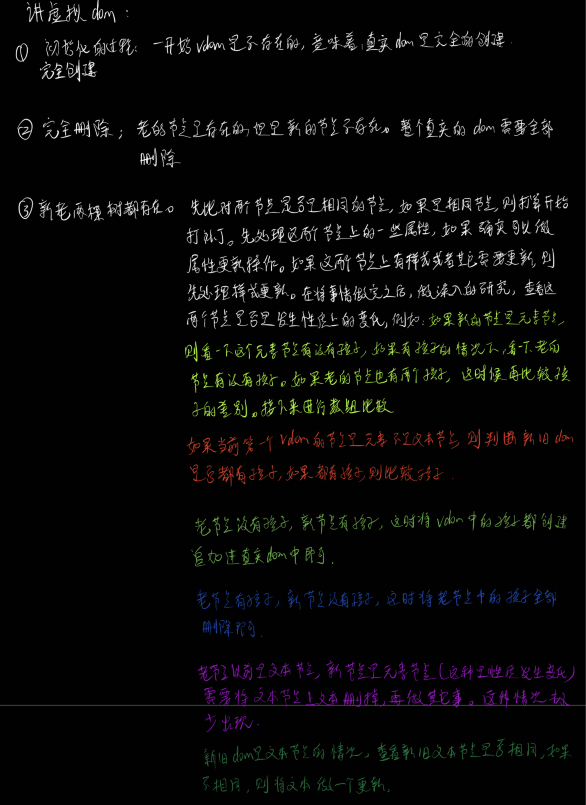 讲虚拟 dom :
① 初始化的过程: 一开始 vdom 是不存在的, 意味着, 真实 dom 是完全的创建.
完全创建
② 完全删除; 老的节点是存在的, 但是新的节点不存在。整个真实的 dom 需要全部
删除
③ 新老两棵树都存在。 先比对两个节点是否是相同的节点, 如果是相同节点, 则打算开始
打补丁。先处理这两个节点上的一些属性, 如果确实可以做
属性更新操作。如果这两个节点上有样式或者其它需要更新, 则
先处理样式更新。在将事情做完之后, 做深入的研究, 查看这
两个节点是否是发生性质上的变化, 例如: 如果新的节点是元素节点,
则看一下这个元素节点有没有孩子, 如果有孩子的情况下, 看一下老的
节点有没有孩子。如果老的节点也有两个孩子, 这时候再比较孩
子的差别。接下来进行数组比较
如果当前第一个 vdom 的节点是元素不是文本节点, 则判断新旧 dom
是否都有孩子, 如果都有孩子, 则比较孩子.
老节点没有孩子, 新节点有孩子, 这时将 vdom 中的孩子都创建
追加进真实 dom 中即可.
老节点有孩子, 新节点没有孩子, 这时将老节点中的孩子全部
删除即可.
老节点以前是文本节点, 新节点是元素节点 (这种是性质发生变化)
需要将文本节点上文本删掉, 再做其它事。这种情况较
少出现.
新旧 dom 是文本节点的情况, 查看新旧文本节点是否相同, 如果
不相同, 则将文本做一个更新.